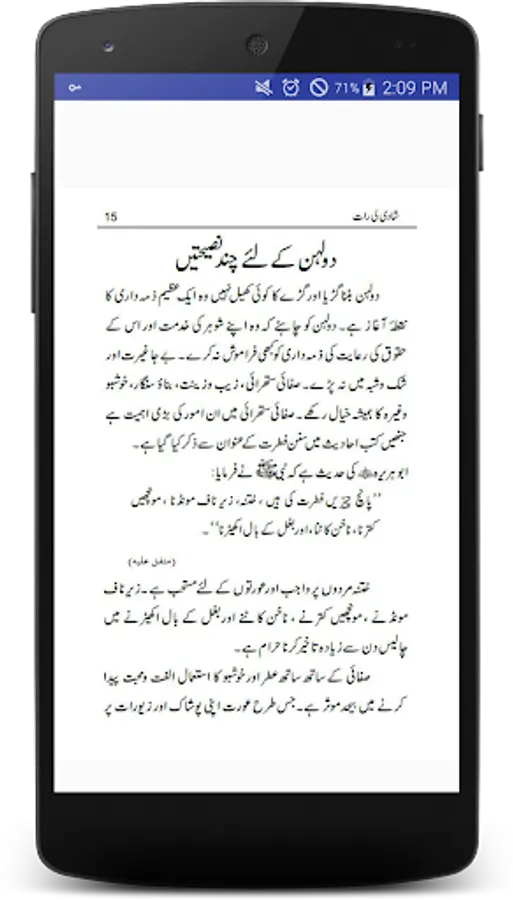 71% 2:09 PM
شادی کی رات 15
دولہن کے لئے چند نصیحتیں
دولہن بننا گڑیا اور گڑے کا کوئی کھیل نہیں وہ ایک عظیم ذمہ داری کا
نقطۂ آغاز ہے۔ دولہن کو چاہئے کہ وہ اپنے شوہر کی خدمت اور اس کے
حقوق کی رعایت کی ذمہ داری کو کبھی فراموش نہ کرے۔ بے جا غیرت اور
شک وشبہ میں نہ پڑے۔ صفائی ستھرائی، زیب وزینت، بناؤ سنگار، خوشبو
وغیرہ کا ہمیشہ خیال رکھے۔ صفائی ستھرائی میں ان امور کی بڑی اہمیت ہے
جنھیں کتب احادیث میں سنن فطرت کے عنوان سے ذکر کیا گیا ہے۔
ابو ہریرہ رضی اللہ عنہ کی حدیث ہے کہ نبی ﷺ نے فرمایا:
’’پانچ چیزیں فطرت کی ہیں، ختنہ، زیر ناف مونڈنا، مونچھیں
کترنا، ناخن کاٹنا، اور بغل کے بال اکھیڑنا‘‘۔
(متفق علیہ)
ختنہ مردوں پر واجب اور عورتوں کے لئے مستحب ہے۔ زیر ناف
مونڈنے، مونچھیں کترنے، ناخن کاٹنے اور بغل کے بال اکھیڑنے میں
چالیس دن سے زیادہ تاخیر کرنا حرام ہے۔
صفائی کے ساتھ ساتھ عطر اور خوشبو کا استعمال الفت ومحبت پیدا
کرنے میں بیحد موثر ہے۔ جس طرح عورت اپنی پوشاک اور زیورات پر